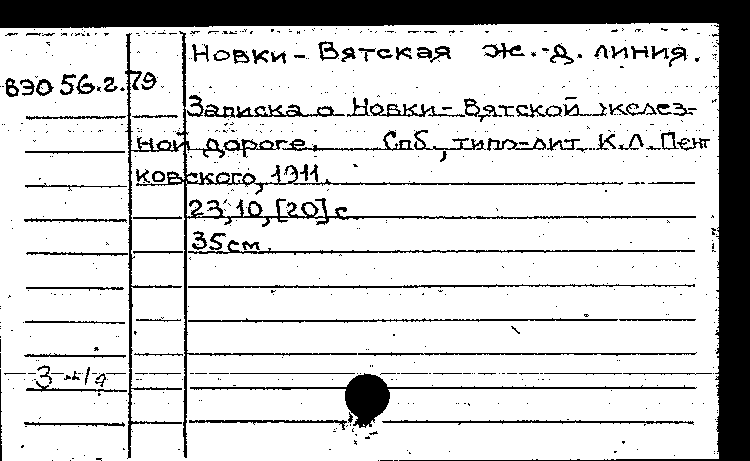 Новки-Вятская ж.-д. линия.
ВЭО 56.2.79
Записка о Новки-Вятской желез-
ной дороге. Спб., типо-лит. К.Л. Пент
ковского, 1911.
23, 10, [20] с.
35 см.